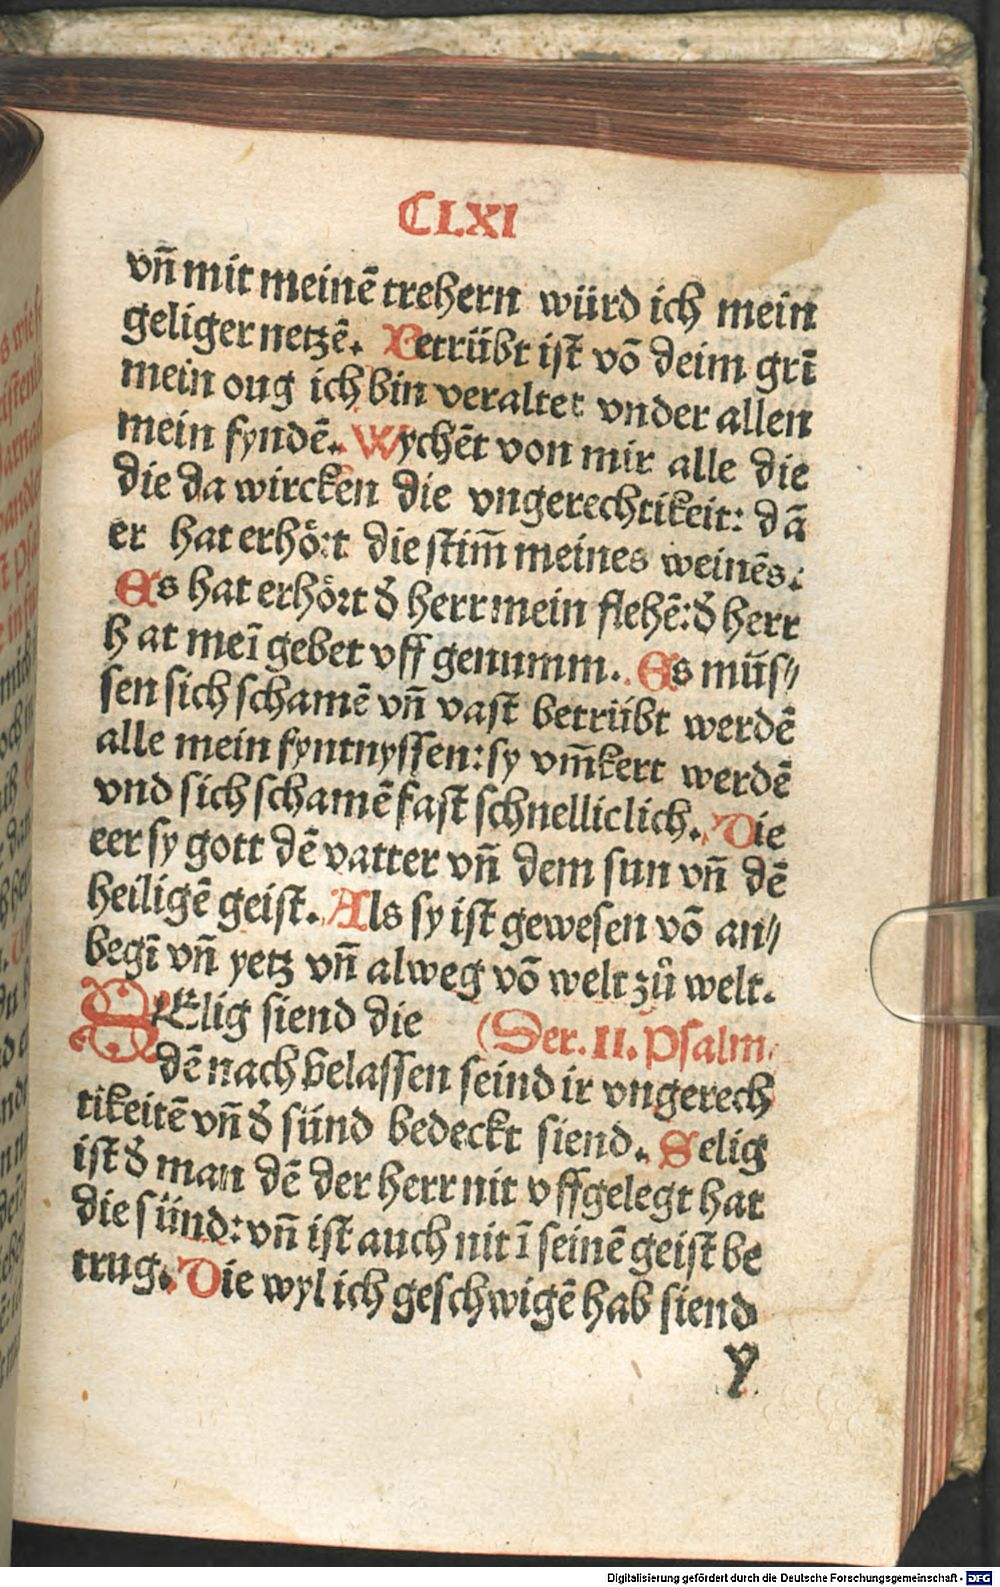 CLXI
vñ mit meinē trehern würd ich mein
geliger netzē. Betrübt ist vō deim grī
mein oug ich bin veraltet vnder allen
mein fyndē. Wychēt von mir alle die
die da wircken die vngerechtikeit: dā
er hat erhört die stim̄ meines weinēs:
Es hat erhört d̄ herr mein flehē: d̄ herr
h at meī gebet vff genumm. Es müs⸗
sen sich schamē vñ vast betrübt werdē
alle mein fyntnyssen: sy vm̄kert werdē
vnd sich schamē fast schnelliclich. Die
eer sy gott dē vatter vñ dem sun vñ dē
heiligē geist. Als sy ist gewesen vō an⸗
begī vñ yetz vñ alweg vō welt zů welt.
SElig siend die (Der. II. Psalm.
dē nach belassen seind ir vngerech
tikeitē vñ d̄ sünd bedeckt siend. Selig
ist d̄ man dē der herr nit vffgelegt hat
die sünd: vñ ist auch nit ī seinē geist be
trug. Die wyl ich geschwigē hab siend
y
Digitalisierung gefördert durch die Deutsche Forschungsgemeinschaft - DFG